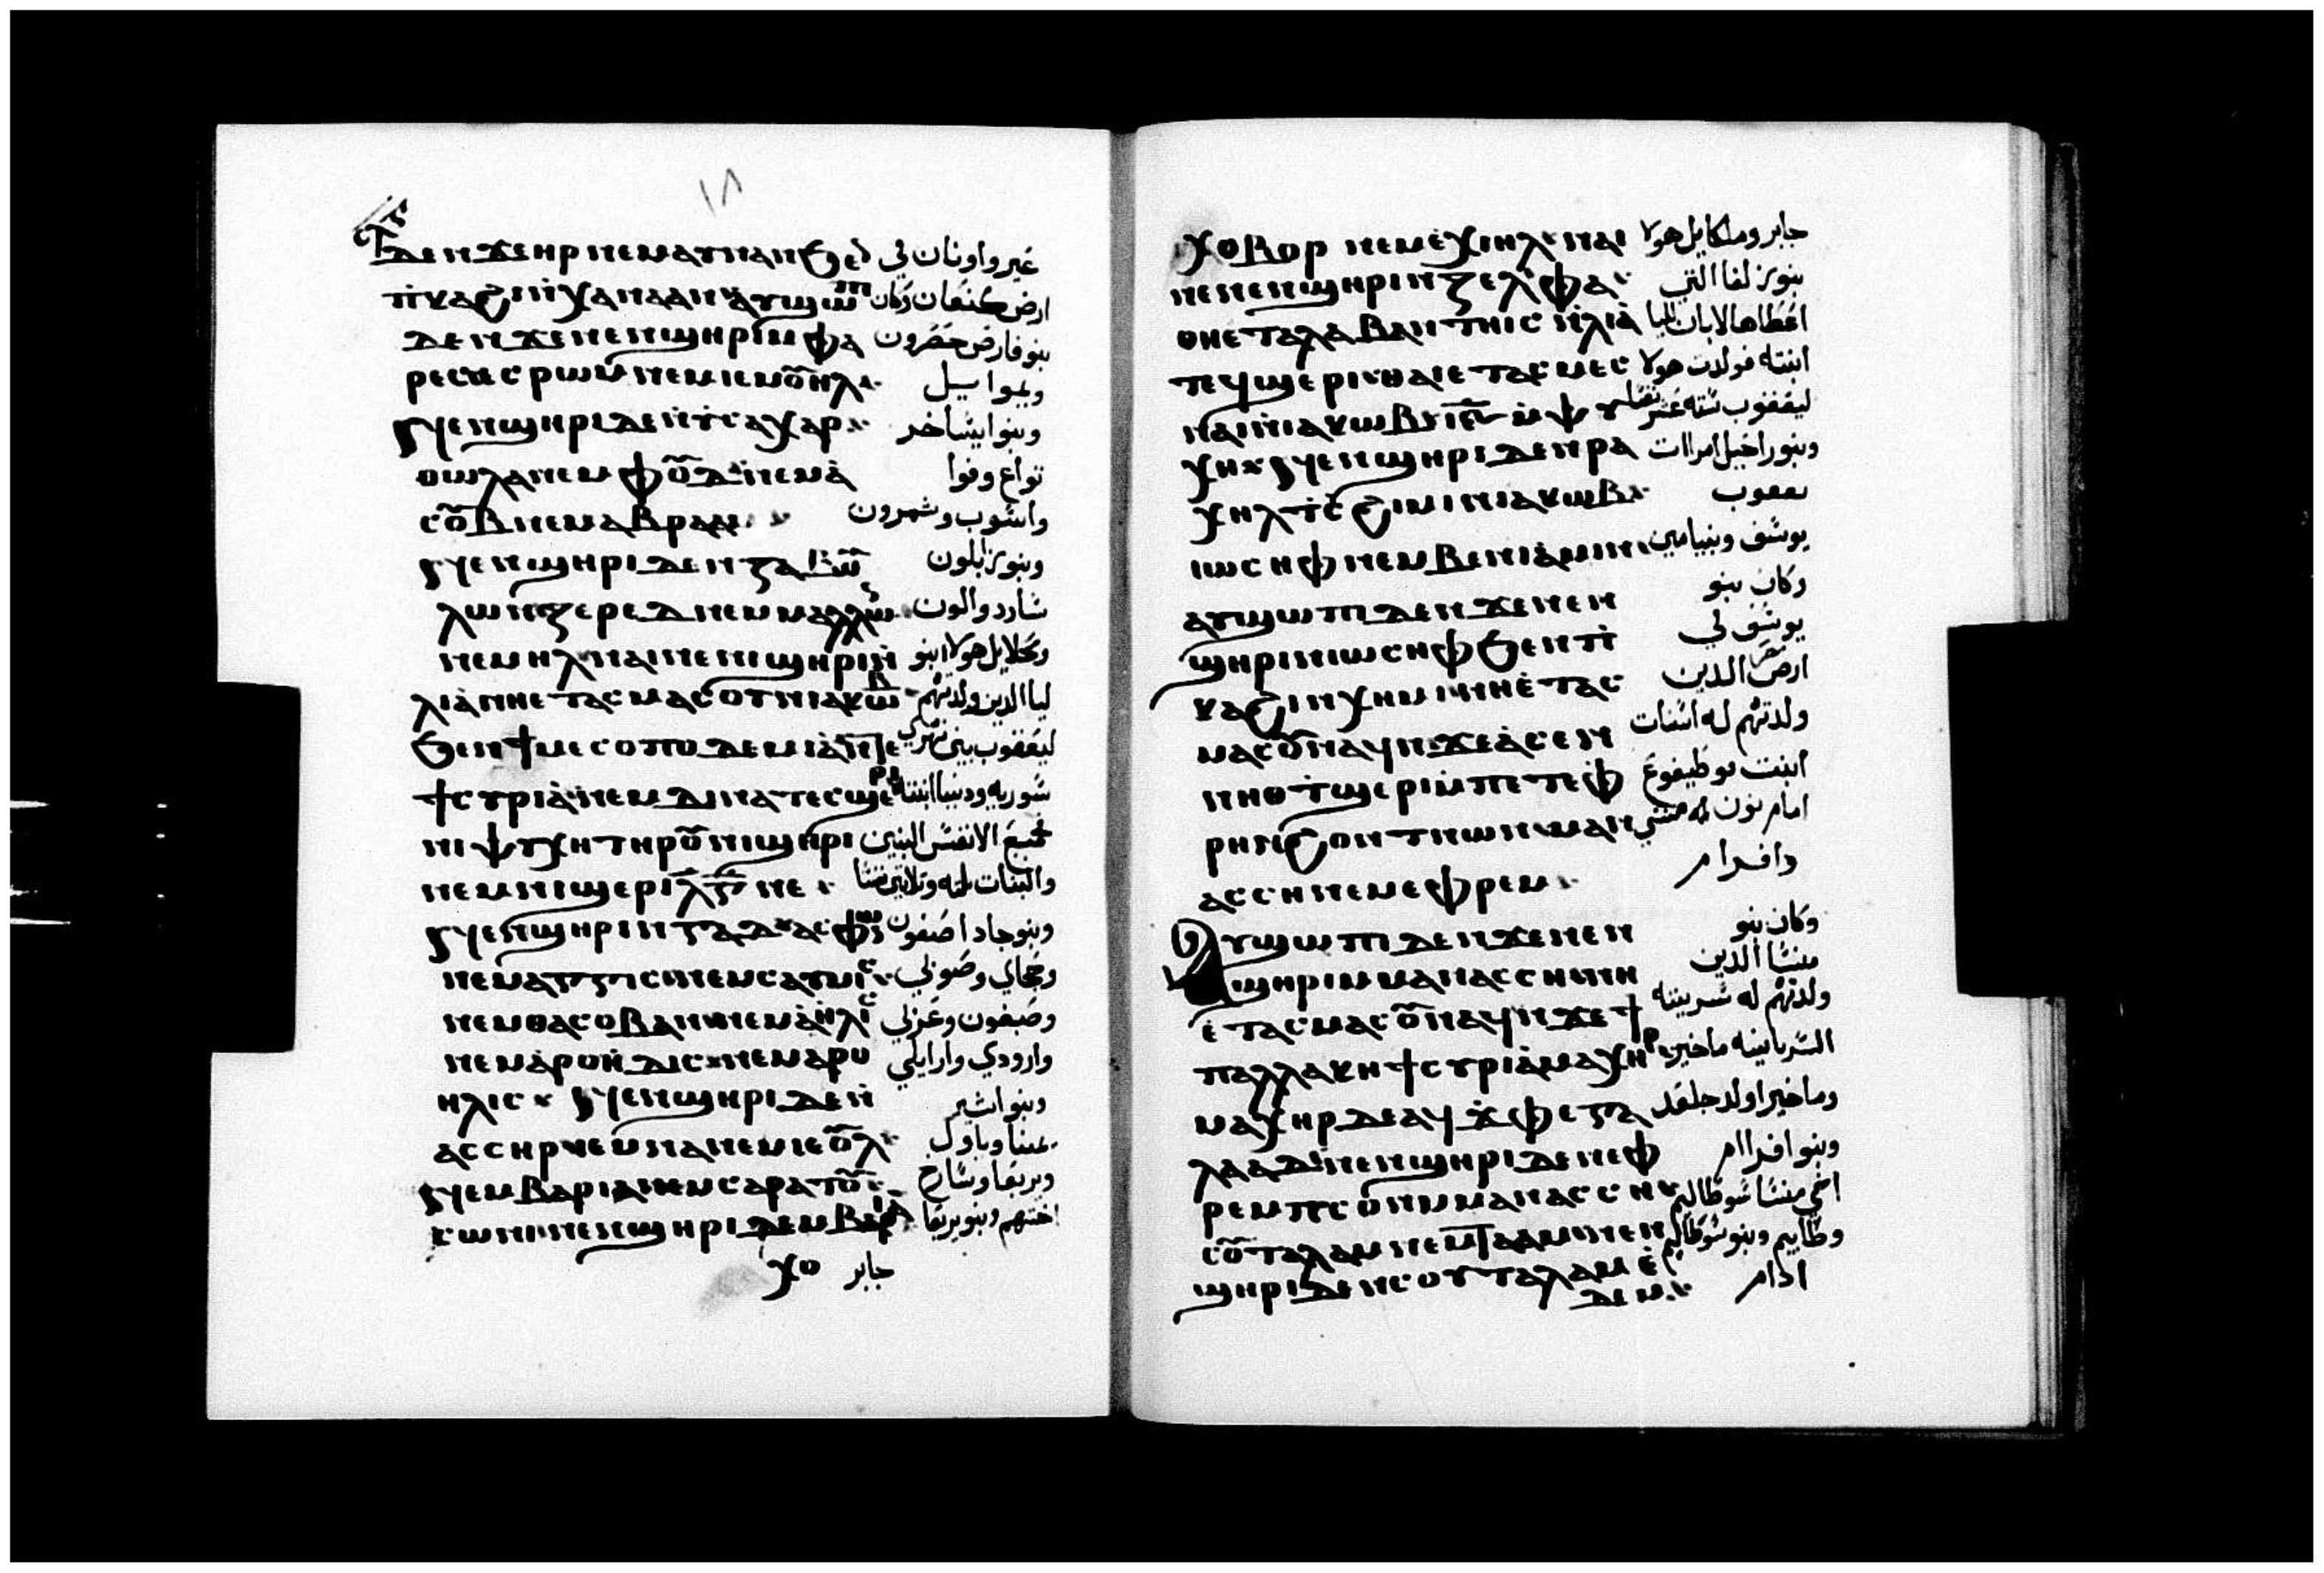 ١٨
ⲇⲉⲛϫⲉⲏⲣ ⲛⲉⲙⲁⲩⲛⲁⲛ ϧⲉⲛ غير واونان لي
ⲡⲕⲁϩⲓⲛⲭⲁⲛⲁⲁⲛ ⲁⲩϣⲱⲡ ارض كنعان وكان
ⲇⲉⲛϫⲉⲛⲉⲛϣⲏⲣⲓⲙⲫⲁ بنو فارض حضرون
ⲣⲉⲥ ⲉⲥⲣⲱⲙ ⲛⲉⲙⲓⲉⲙⲟⲩⲏⲗ
ⲛⲉⲛϣⲏⲣⲓⲇⲉⲛⲓⲥⲁⲭⲁⲣ وبنو ايشاخر
ⲑⲱⲗⲁⲛⲉⲙⲫⲟⲩⲁ ⲛⲉⲙⲁ تواع وفوا
ⲥⲟⲩⲃ ⲛⲉⲙⲁⲃⲣⲁⲙ واشوب وشمرون
ⲛⲉⲛϣⲏⲣⲓⲇⲉⲛⲍⲁ وبنو زابلون
ⲗⲱⲛ ⲍⲉⲣⲉⲇ ⲛⲉⲙⲙⲁⲗⲗⲱ شارد والون
ⲛⲉⲙⲏⲗ ⲛⲁⲓⲛⲉⲛⲓϣⲏⲣⲓⲛ هولا ابنو
ⲗⲓⲁ ⲛⲏⲉⲧⲁⲥⲙⲁⲥⲟⲩⲛⲓⲁⲕⲱⲃ ليا الدين ولدتهم
ϧⲉⲛϯⲙⲉⲥⲟⲡⲟⲇⲉⲙⲓⲁ ⲛⲧⲉ ليعقوب بين نهري
ϯⲥⲩⲣⲓⲁ ⲛⲉⲙⲇⲓⲛⲁⲧⲉⲥϣⲉⲣⲓ شوريه ودينا ابنته
ⲛⲓⲯⲩⲭⲏⲧⲏⲣⲟⲩⲛⲓϣⲏⲣⲓ جميع الانفس البنين
ⲛⲉⲙⲛⲓϣⲉⲣⲓ ⲗⲅ ⲛⲉ والبنات تلته وتلاتين نفسا
ⲛⲉⲛϣⲏⲣⲓⲛⲅⲁⲇ وبنو جاد اصفون
ⲛⲉⲙⲁⲅⲅⲓⲥⲛⲉⲙⲥⲁⲩⲛⲓⲥ وحجاي وصوني
ⲛⲉⲙⲑⲁⲥⲟⲃⲁⲛ ⲛⲉⲙⲁⲏⲗⲓⲥ وصبفون وعزلي
ⲛⲉⲙⲁⲣⲟⲏⲇⲓⲥ ⲛⲉⲙⲁⲣⲟ وارودي وارايلي
ⲏⲗⲓⲥ ⲛⲉⲛϣⲏⲣⲓⲇⲉⲛ وبنو اشير
ⲁⲥⲥⲏⲣ ⲓⲉⲙⲛⲁⲛⲉⲙⲓⲉⲟⲩⲗ يمنا وياول
ⲛⲉⲙⲃⲁⲣⲓⲁⲛⲉⲙⲥⲁⲣⲁⲧⲟⲩ وبريعا وشارح
ⲥⲱⲛⲓ ⲛⲉⲛϣⲏⲣⲓⲇⲉⲙⲃⲉⲣⲓⲁ اختهم وبنو بريعا
ⲭⲟ جابر
ⲭⲟⲃⲟⲣ ⲛⲉⲙⲉⲭⲓⲏⲗ ⲛⲁⲓ جابر وملكايل هولا
ⲛⲉⲛⲉⲛϣⲏⲣⲓⲛⲍⲉⲗⲫⲁ بنو زلفا التي
ⲑⲏⲉⲧⲁⲗⲁⲃⲁⲛⲧⲏⲓⲥ ⲛⲗⲓⲁ اعطاها لابان لليا
ⲧⲉϥϣⲉⲣⲓ ⲑⲁⲓⲉⲧⲁⲥⲙⲉⲥ ابنته فولدت هولا
ⲛⲁⲓⲛⲓⲁⲕⲱⲃ ⲓⲋ ⲙⲯⲩ ليعقوب سته عشر نفس
ⲭⲏ ⲛⲉⲛϣⲏⲣⲓⲇⲉⲛⲣⲁ وبنو راخيل امراات
ⲭⲏⲗⲧⲥϩⲓⲙⲓⲛⲓⲁⲕⲱⲃ يعقوب
ⲓⲱⲥⲏⲫ ⲛⲉⲙⲃⲉⲛⲓⲁⲙⲓⲛ يوشف وبنيامين
ⲁⲩϣⲱⲡⲓⲇⲉⲛϫⲉⲛⲉⲛ وكان بنو
ϣⲏⲣⲓⲛⲓⲱⲥⲏⲫϧⲉⲛⲡ يوشف لي
ⲕⲁϩⲓⲛⲭⲏⲙⲓ ⲛⲏⲉⲧⲁⲥ ارض مصر الدين
ⲙⲁⲥⲟⲩⲛⲁϥⲛϫⲉⲁⲥⲉⲛ ولدتهم له اشنات
ⲛⲏⲑⲧϣⲉⲣⲓⲙⲡⲉⲧⲉⲫ ابنت بوطيفوع
ⲣⲏⲡⲓϩⲟⲛⲧⲛⲱⲛ ⲙⲁⲛ امام نون له منشي
ⲁⲥⲥⲏⲛⲉⲙⲉⲫⲣⲉⲙ وافرام
ⲁⲩϣⲱⲡⲓⲇⲉⲛϫⲉⲛⲉⲛ وكان بنو
ϣⲏⲣⲓⲙⲙⲁⲛⲁⲥⲥⲏ ⲛⲏ منشا الدين
ⲉⲧⲁⲥⲙⲁⲥⲟⲩⲛⲁϥⲛϫⲉϯ ولدتهم له شريته
ⲡⲁⲗⲗⲁⲕⲏϯⲥⲩⲣⲓⲁ ⲙⲁⲭⲏⲣ السريانيه ماخير
ⲙⲁⲭⲏⲣⲇⲉⲁϥϫⲫⲉⲅⲁ وماخير اولد جلعد
ⲗⲁⲁⲇ ⲛⲉⲛϣⲏⲣⲓⲇⲉⲛⲉⲫ وبنو افراام
ⲣⲉⲙⲡⲥⲟⲛⲙⲙⲁⲛⲁⲥⲥⲏ اخي منشا شوطاليم
ⲥⲟⲩⲧⲁⲗⲁⲙⲛⲉⲙⲧⲁⲁⲙ ⲛⲉⲛ وطاييم وبنو شوطاليم
ϣⲏⲣⲓⲇⲉⲛⲥⲟⲩⲧⲁⲗⲁⲙ ⲉ ادام
ⲇⲉⲙ